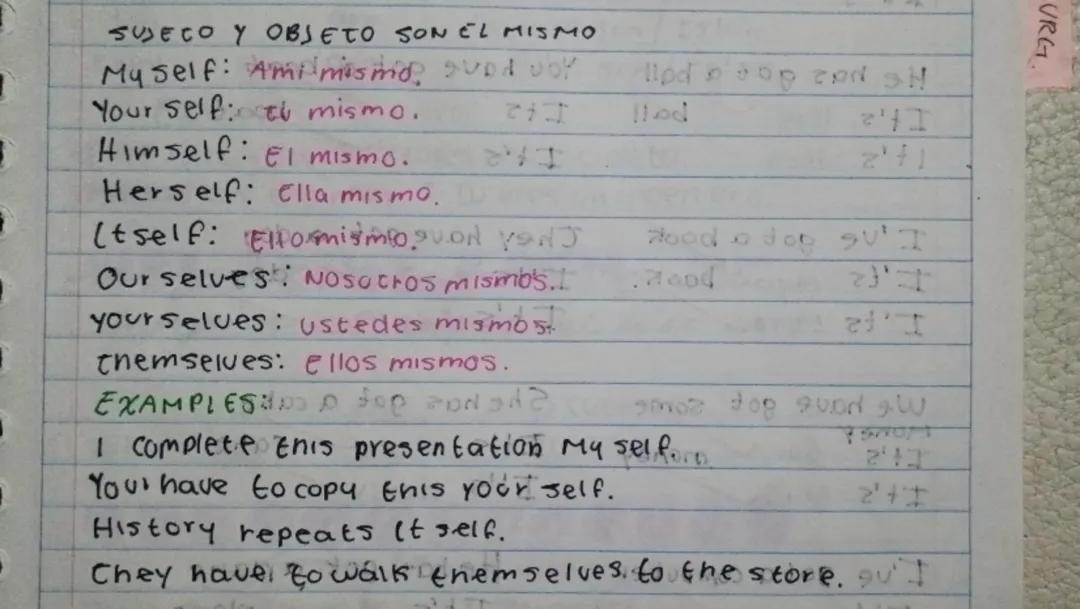 SUJETO Y OBJETO SON EL MISMO
Myself: A mi mismo.
Your self: tú mismo.
Himself: El mismo.
Herself: Ella mismo.
Itself: Ello mismo.
Our selves: Nosotros mismos.
yourselves: ustedes mismos.
themselves: Ellos mismos.
EXAMPLES:
I complete this presentation My self.
You have to copy this your self.
History repeats It self.
They have to walk themselves to the store.
URG.